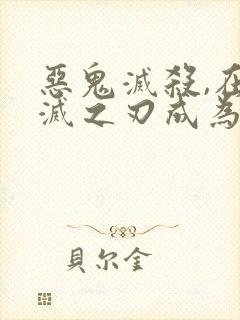 惡鬼滅殺,在
滅之刃成為
貝尔金